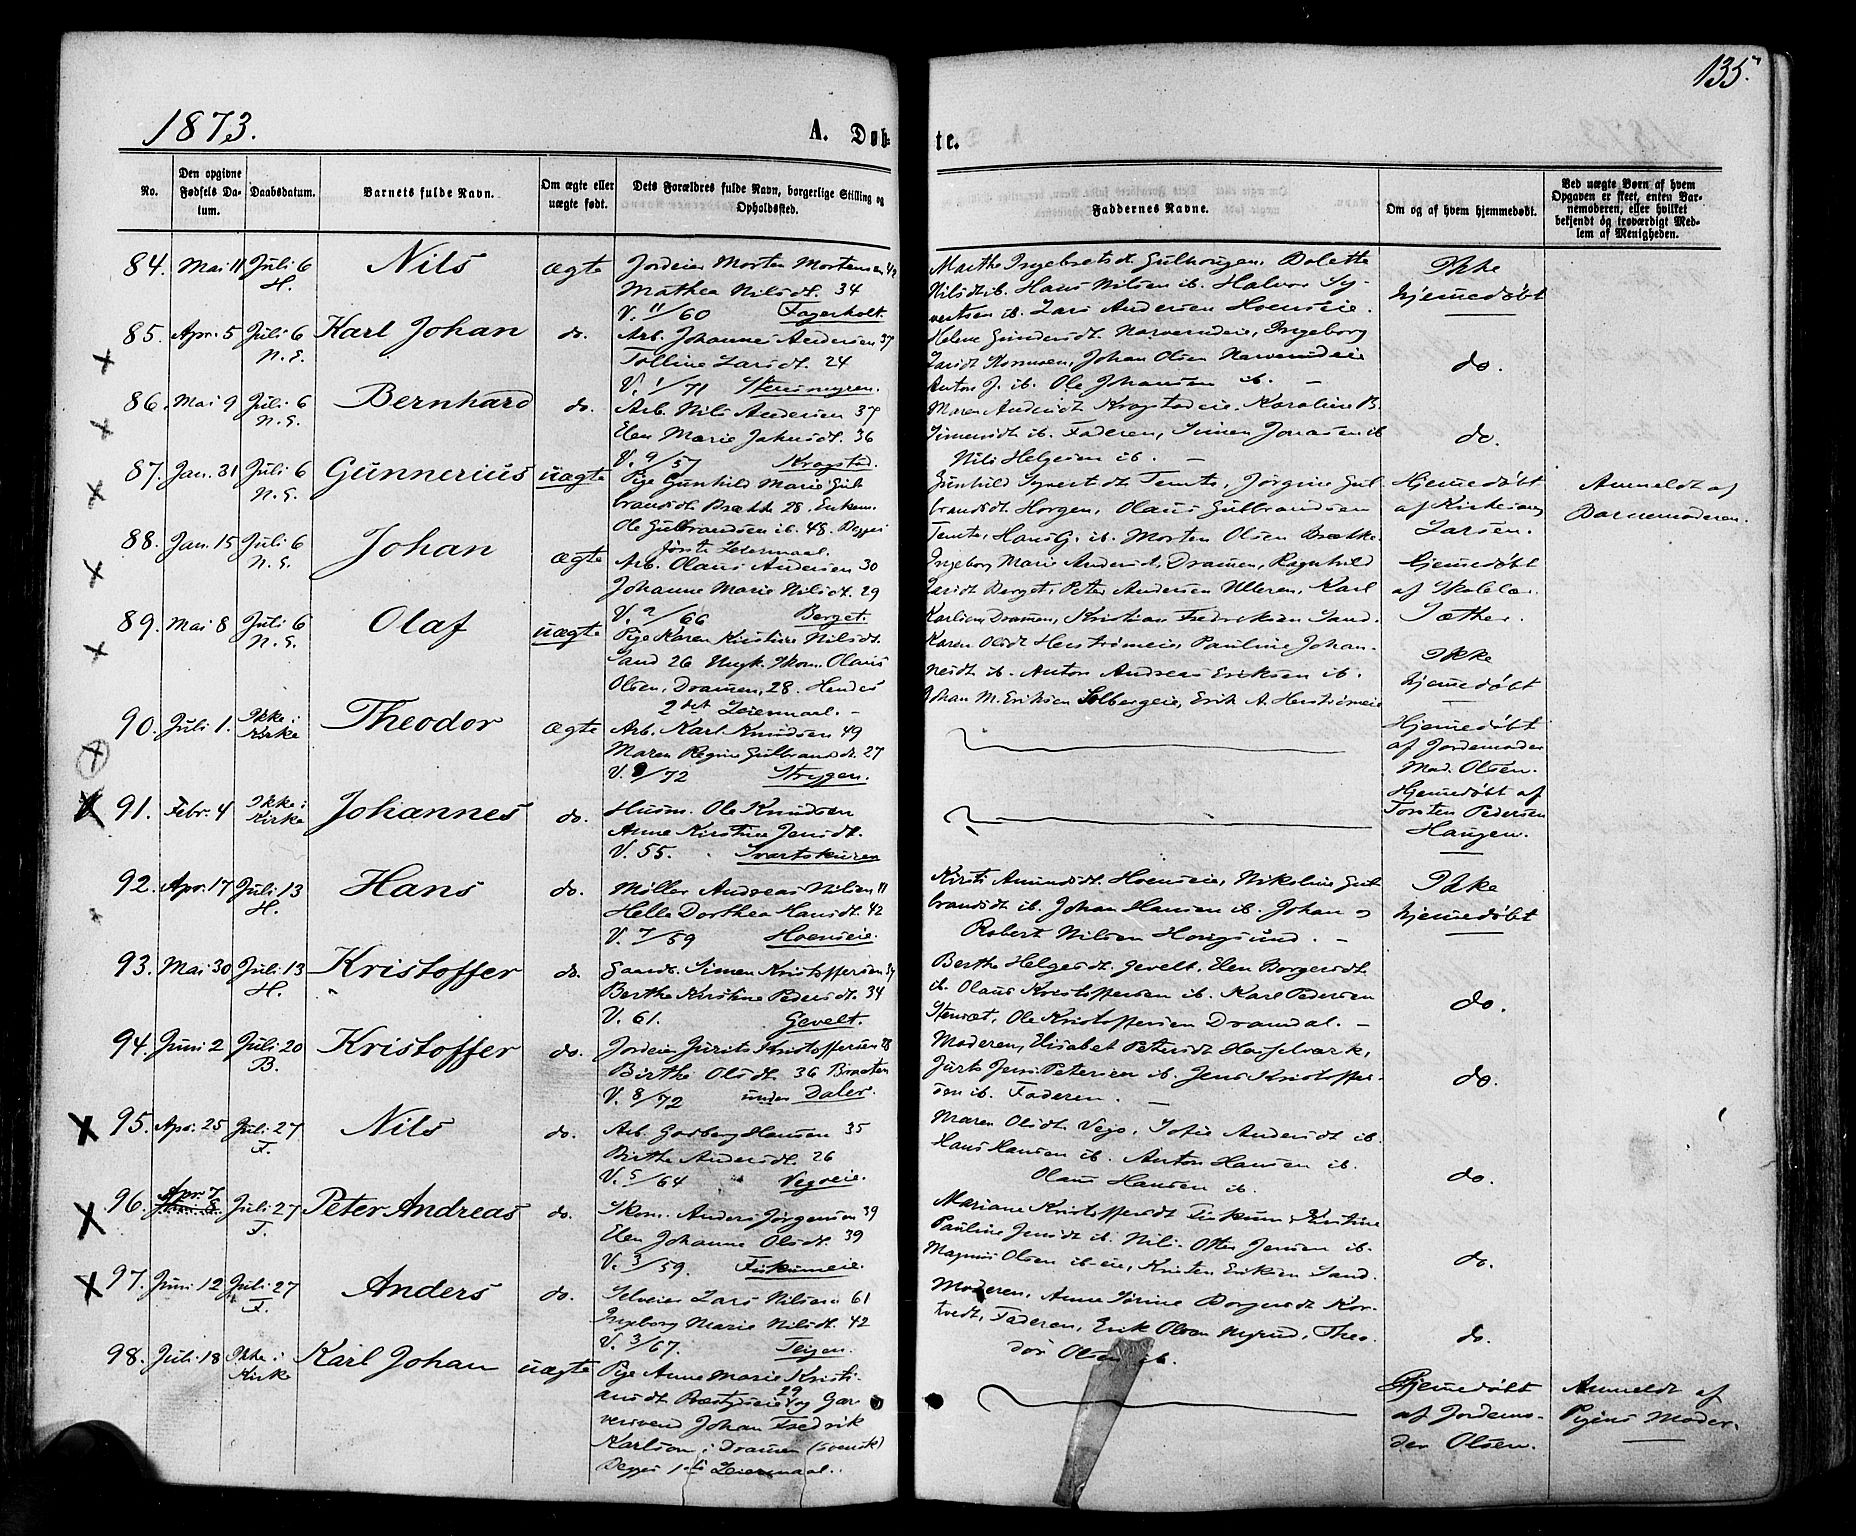 135.
1873.
A. Døb-
te.
No.
Den opgivne Fødsels Da-
tum.
Daabsdatum.
Barnets fulde Navn.
Om ægte eller
uægte født.
Dets Forældres fulde Navn, borgerlige Stilling og
Opholdssted.
Faddernes Navne.
Om og af hvem hjemmedøbt.
Ved uægte Børn af hvem
Opgaven er skeet, enten Bar-
nemoderen, eller hvilket
bekjendt og troværdigt Med-
lem af Menigheden.
84. Mai 11 Juli 6 H. Nils ægte
Jordeier Morten Mortensen 42
Mathea Nilsdt. 34
V. 11/60 Fagerholt
Marthe Ingebretsdt. Gulhougen, Bolette
Nilsdt ib. Hans Nilsen ib. Halvor Sy-
vertsen ib. Lars Andersen Hoenseie.
Ikke
hjemedøbt
85. Apr. 5 Juli 6 N.E. Karl Johan do.
Arb. Johannes Andersen 37
Tolline Larsdt. 24
V. 1/71 Stensmyren.
Helene Gundersdt. Narverudeie, Ingeborg
Larsdt Johan Olsen Narverudeie
Anton J. ib. Ole Johansen ib. –
do.
86. Mai 9 Juli 6 N.E. Bernhard do.
Arb. Nils Andersen 37
Elen Marie Jakobsdt. 36
V. 9/57 Krogstad.
Maren Andersdt Krogstadeie, Karoline B.
Simensdt ib. Faderen, Simen Jonassen ib
Nils Helgesen ib. –
do.
87. Jan. 31 Juli 6 N.E. Gunnerius uægte
Pige Gunhild Marie Gul-
brandsdt Brække 28. Enkem.
Ole Gulbrandsen ib. 48. Begges
første Leiermaal.
Gunhild Syvertsdt Temte, Jørgine Gul-
brandsdt. Horgen, Olaus Gulbrandsen
Temte, Hans G. ib. Morten Olsen Brække
Hjemedøbt
af Kristian
Larsen.
Anmeldt af
Barnemoderen.
88. Jan. 15 Juli 6 N.E. Johan ægte
Arb. Olaus Andersen 30
Johanne Marie Nilsdt. 29
V. 2/66 Berget.
Ingeborg Marie Andersdt, Dramen, Ragnhild
Larsdt Berget, Peter Andersen Ulleren, Karl
Karlsen Dramen, Kristian Fredriksen Sand.
Hjemedøbt
af Skolelær.
Sæther.
89. Mai 8 Juli 6 N.E. Olaf uægte
Pige Karen Kirstine Nilsdt.
Sand 26 Ungk. Skom. Olaus
Olsen, Dramen, 28. Hendes
2det Leiermaal. –
Karen Olsdt Herstrømeie, Pauline Johan-
nesdt ib. Anton Andreas Eriksen ib.
Johan M. Eriksen Solbergeie, Erik A. Herstrømeie
Ikke
hjemedøbt
90. Juli 1. Ikke i Kirke Theodor ægte
Arb. Karl Knudsen 49
Maren Regine Gulbrandsdt. 27
V. 8/72 Stryggen.
Hjemedøbt
af Jordemoder
Mad. Olsen.
91. Febr. 4 Ikke i Kirke Johannes do.
Husm. Ole Knudsen
Anne Kirstine Jensdt.
V. 55. Svartskuren
Hjemedøbt af
Torsten Pedersen
Haugen.
92. Apr. 17 Juli 13 H. Hans do.
Møller Andreas Nilsen 11
Helle Dorthea Hansdt. 42
V. 7/59 Hoenseie.
Kirsti Amundsdt. Hoenseie, Nikoline Gul-
brandsdt ib. Johan Hansen ib. Johan og
Robert Nilsen Hougsund. –
Ikke
hjemedøbt
93. Mai 30 Juli 13 H. Kristoffer do.
Gaardb. Simen Kristoffersen 39
Berthe Kirstine Pedersdt. 34
V. 61. Gevelt.
Berthe Helgesdt. Gevelt, Elen Borgersdt.
ib. Olaus Kristoffersen ib. Karl Pedersen
Stensæt, Ole Kristoffersen Dramdal. –
do.
94. Juni 2 Juli 20 B. Kristoffer do.
Jordeier Jurits Kristoffersen 28
Birthe Olsdt. 36 Braaten
V. 8/72 under Daler.
Moderen, Elisabet Petersdt Hasselværk,
Jurts Jens Petersen ib. Jens Kristoffer-
sen ib. Faderen. –
do.
95. Apr. 25 Juli 27 F. Nils do.
Arb. Gudberg Hansen 35
Birthe Andersdt. 26
V. 5/64 Vegseie.
Maren Olsdt Vego, Sofie Andersdt ib.
Hans Hansen ib. Anton Hansen ib.
Olaus Hansen ib.
do.
96. Apr. 7 Juli 27 F. Peter Andreas do.
Skom. Anders Jørgensen 39
Elen Johanne Olsdt. 39
V. 3/59. Fiskumeie.
Mariane Kristoffersdt Fiskum, Kirstine
Pauline Jensdt ib. Nils Otter Jensen ib.
Magnus Olsen ib-eie, Kristen Eriksen Sand.
do.
97. Juni 12 Juli 27 F. Anders do.
Selveier Lars Nilsen 61
Ingeborg Marie Nilsdt. 42
V. 3/67. Teigen.
Moderen, Anne Sørine Borgersdt Kor-
tvedt, Faderen, Erik Olsen Myrud, Theo-
dor Olsen ib.
do.
98. Juli 18 Ikke i Kirke Karl Johan uægte
Pige Anne Marie Kristi-
ansdt Præstgrdseie 29 og Gar-
versvend Johan Fredrik
Karlson i Dramen (svensk)
Begges 1ste Leiermaal.
Hjemedøbt
af Jordemo-
der Olsen.
Anmeldt af
Pigens Moder.